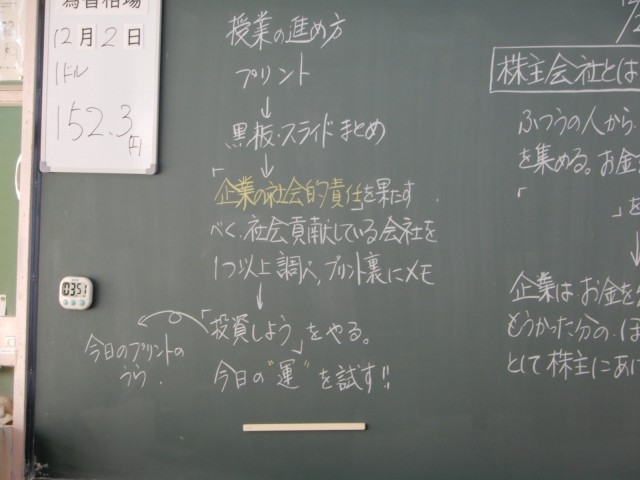 為替相場
12月2日
1ドル
152.3
円
授業の進め方
プリント
↓
黒板・スライドまとめ
↓
「企業の社会的責任」を果たす
べく、社会貢献している会社を
1つ以上調べ、プリント裏にメモ
↓
「投資しよう」をやる。
今日のプリントの
うら.
今日の"運"を試す!!
03:51
株主会社とは
ふつうの人から
を集める。お金
「
」を
↓
企業はお金を
もうかった分の、ほ
として株主にあ